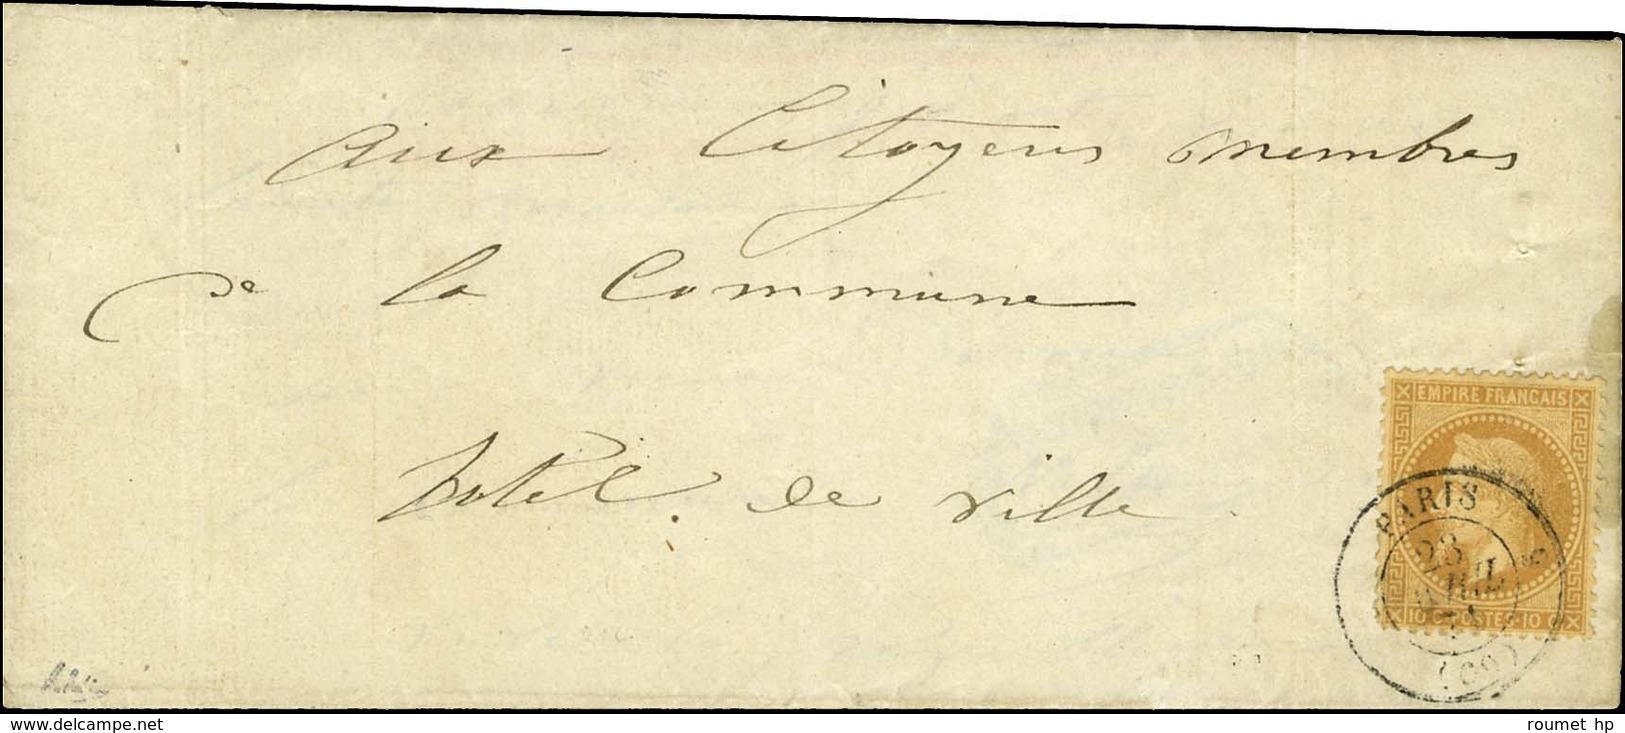 Aux Citoyens membres
de la Commune
hotel de ville
EMPIRE FRANCAIS
10 C. POSTES. 10 C.
PARIS
23
AVRIL
71
(60)
delcampe.net
roumet hp